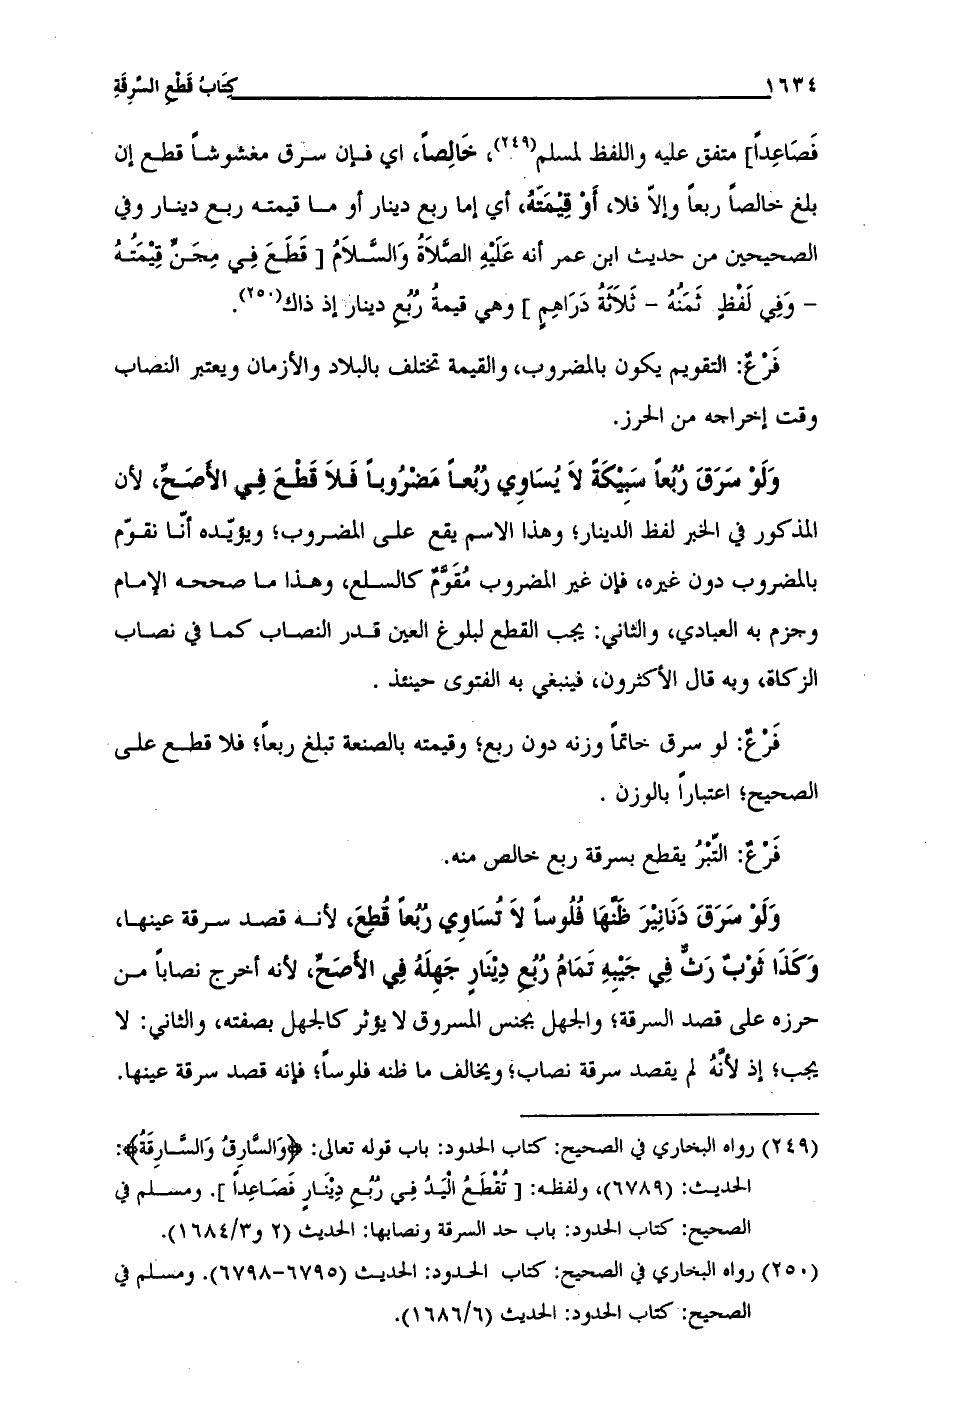 ١٦٣٤ كِتَابُ قَطْعِ السَّرِقَةِ
فَصَاعِداً] متفق عليه واللفظ لمسلم(٢٤٩)، خَالِصاً، اي فـإن سـرق مغشوشـاً قطـع إن
بلغ خالصاً ربعاً وإلاّ فلا، أَوْ قِيْمَتُهُ، أي إما ربع دينار أو مـا قيمتـه ربـع دينـار وفي
الصحيحين من حديث ابن عمر أنه عَلَيْهِ الصَّلَاةُ وَالسَّـلَامُ [ قَطَـعَ فِـي مِجَـنٍّ قِيْمَتُـهُ
– وَفِي لَفْظٍ ثَمَنُهُ – ثَلَاثَةُ دَرَاهِمٍ ] وهي قيمةُ رُبُعِ دينار إذ ذاك(٢٥٠).
فَرْعٌ: التقويم يكون بالمضروب، والقيمة تختلف بالبلاد والأزمان ويعتبر النصاب
وقت إخراجه من الحرز.
وَلَوْ سَرَقَ رُبُعاً سَبِيْكَةً لَا يُسَاوِي رُبُعـاً مَضْرُوبـاً فَـلَا قَطْـعَ فِـي الأَصَـحِّ، لأن
المذكور في الخبر لفظ الدينار؛ وهذا الاسم يقع علـى المضـروب؛ ويؤيّـده أنّـا نقـوّم
بالمضروب دون غيره، فإن غير المضروب مُقَوَّمٌ كالسلع، وهـذا مـا صححـه الإمـام
وجزم به العبادي، والثاني: يجب القطع لبلوغ العين قـدر النصـاب كمـا في نصـاب
الزكاة، وبه قال الأكثرون، فينبغي به الفتوى حينئذ .
فَرْعٌ: لو سرق خاتماً وزنه دون ربع؛ وقيمته بالصنعة تبلغ ربعاً؛ فلا قطـع علـى
الصحيح؛ اعتباراً بالوزن .
فَرْعٌ: التِّبْرُ يقطع بسرقة ربع خالص منه.
وَلَوْ سَرَقَ دَنَانِيْرَ ظَنَّهَا فُلُوساً لَا تُسَاوِي رُبُعاً قُطِعَ، لأنـه قصـد سـرقة عينهـا،
وَكَذَا ثَوْبٌ رَثٌّ فِي جَيْبِهِ تَمَامُ رُبُعِ دِيْنَارٍ جَهِلَهُ فِي الأَصَحِّ، لأنه أخرج نصاباً مـن
حرزه على قصد السرقة؛ والجهل بجنس المسروق لا يؤثر كالجهل بصفته، والثاني: لا
يجب؛ إذ لأَنَّهُ لم يقصد سرقة نصاب؛ ويخالف ما ظنه فلوساً؛ فإنه قصد سرقة عينها.
(٢٤٩) رواه البخاري في الصحيح: كتاب الحدود: باب قوله تعالى: ﴿وَالسَّارِقُ وَالسَّـارِقَةُ﴾:
الحديـث: (٦٧٨٩)، ولفظـه: [ تُقْطَـعُ الْيَـدُ فِـي رُبُـعِ دِيْنَـارٍ فَصَـاعِداً ]. ومسـلم في
الصحيح: كتاب الحدود: باب حد السرقة ونصابها: الحديث (٢ و٣/١٦٨٤).
(٢٥٠) رواه البخاري في الصحيح: كتاب الحـدود: الحديـث (٦٧٩٥–٦٧٩٨). ومسـلم في
الصحيح: كتاب الحدود: الحديث (١٦٨٦/٦).